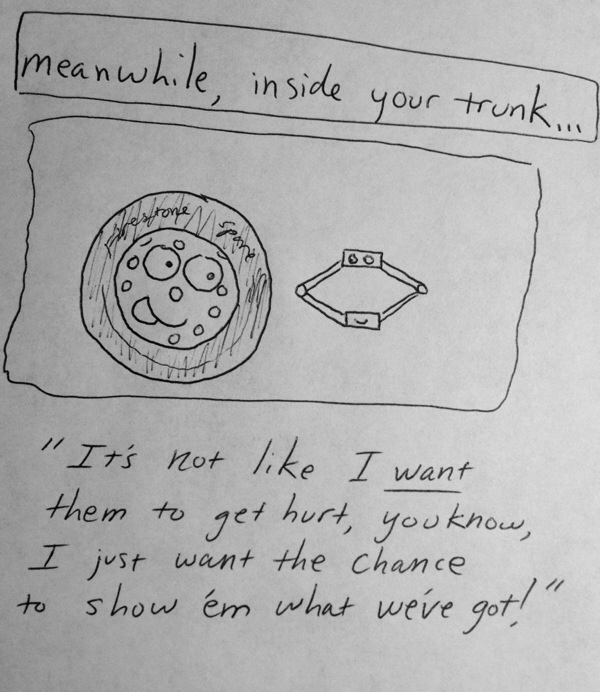 meanwhile, inside your trunk...
Firestone spare
"It's not like I want
them to get hurt, you know,
I just want the chance
to show 'em what we've got!"